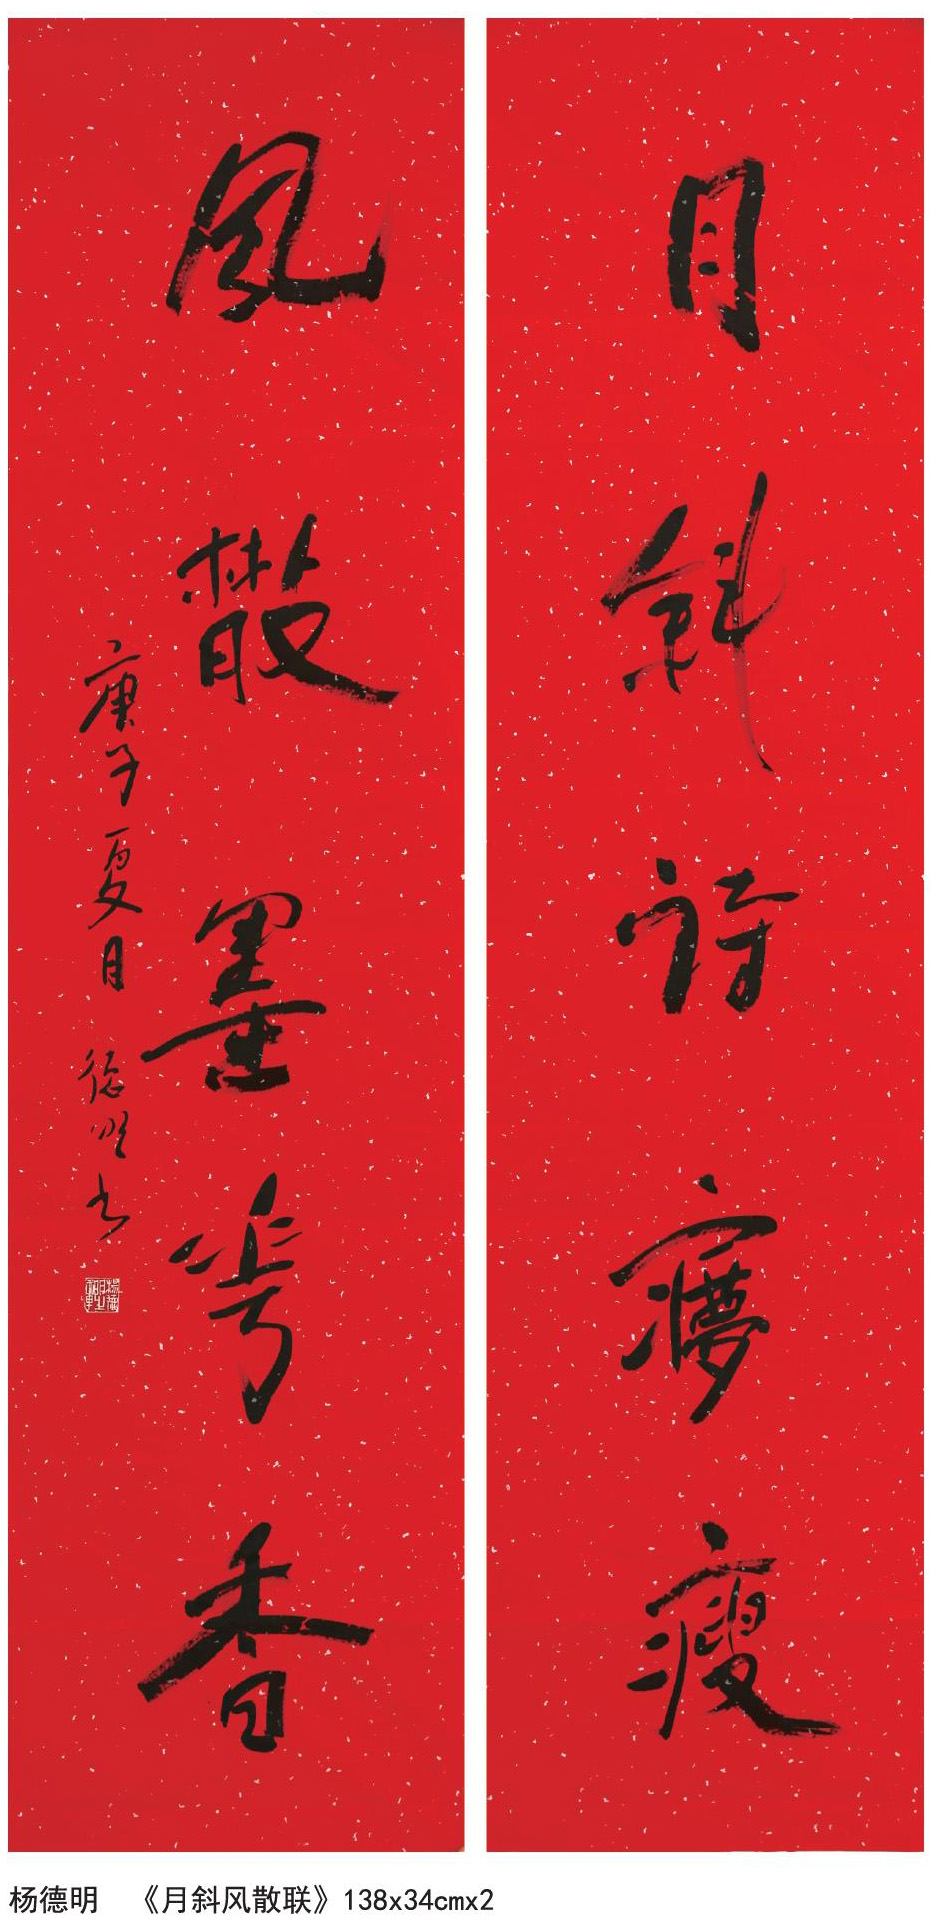 月斜詩㝱瘦
風散墨華香
庚子夏月 德明书
杨德明 《月斜风散联》138x34cmx2